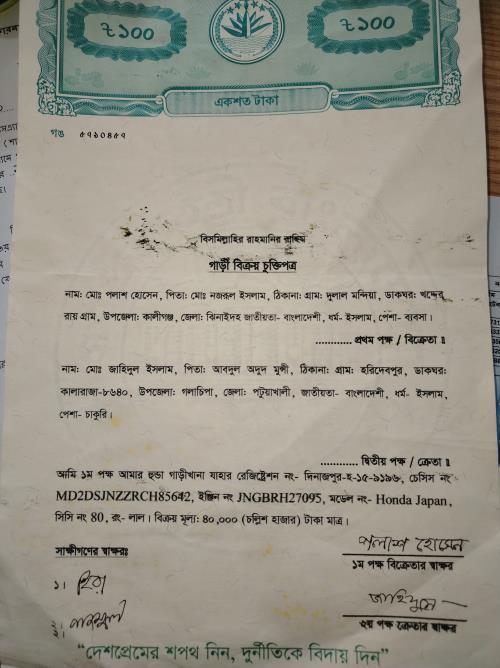 ৳১০০ ৳১০০
একশত টাকা
গঙ ৫৭১০৪৫৭
বিসমিল্লাহির রাহমানির রাহিম
গাড়ী বিক্রয় চুক্তিপত্র
নাম: মোঃ পলাশ হোসেন, পিতা: মোঃ নজরুল ইসলাম, ঠিকানা: গ্রাম: দুলাল মন্দিয়া, ডাকঘর: খন্দেবু
রায় গ্রাম, উপজেলা: কালীগঞ্জ, জেলা: ঝিনাইদহ জাতীয়তা- বাংলাদেশী, ধর্ম- ইসলাম, পেশা- ব্যবসা।
............ প্রথম পক্ষ / বিক্রেতা ॥
নাম: মোঃ জাহিদুল ইসলাম, পিতা: আবদুল অদুদ মুন্সী, ঠিকানা: গ্রাম: হরিদেবপুর, ডাকঘর:
কালারাজা-৮৬৪০, উপজেলা: গলাচিপা, জেলা: পটুয়াখালী, জাতীয়তা- বাংলাদেশী, ধর্ম- ইসলাম,
পেশা- চাকুরি।
............ দ্বিতীয় পক্ষ / ক্রেতা ॥
আমি ১ম পক্ষ আমার হুন্ডা গাড়ীখানা যাহার রেজিষ্ট্রেশন নং- দিনাজপুর-হ-১৫-৯১৯৬, চেসিস নং-
MD2DSJNZZRCH85642, ইঞ্জিন নং JNGBRH27095, মডেল নং- Honda Japan,
সিসি নং 80, রং- লাল। বিক্রয় মূল্য: ৪০,০০০ (চল্লিশ হাজার) টাকা মাত্র।
সাক্ষীগণের স্বাক্ষরঃ
পলাশ হোসেন
১ম পক্ষ বিক্রেতার স্বাক্ষর
১। হিরা
জাহিদুল
২।
২য় পক্ষ ক্রেতার স্বাক্ষর
“দেশপ্রেমের শপথ নিন, দুর্নীতিকে বিদায় দিন”